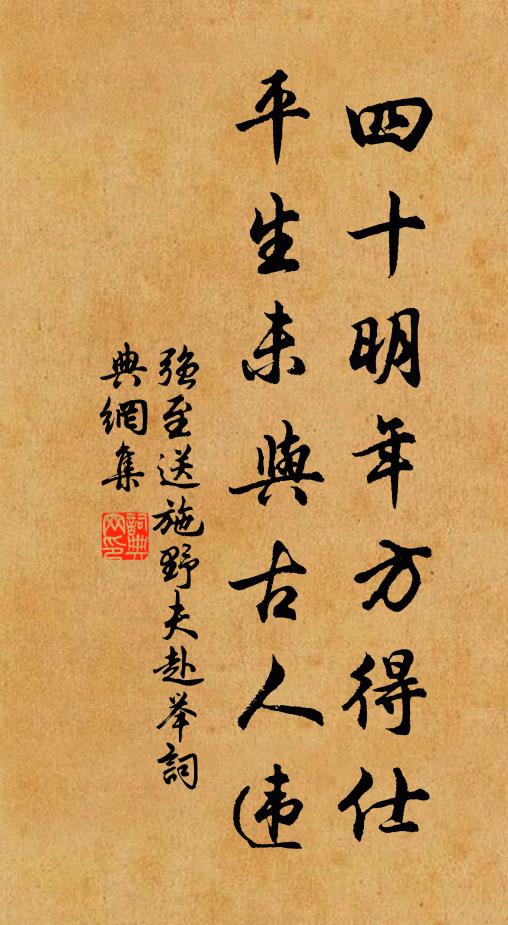 四十明年方得仕
平生未與古人违
强至送施野夫赴举詞
典網集
詞典网印